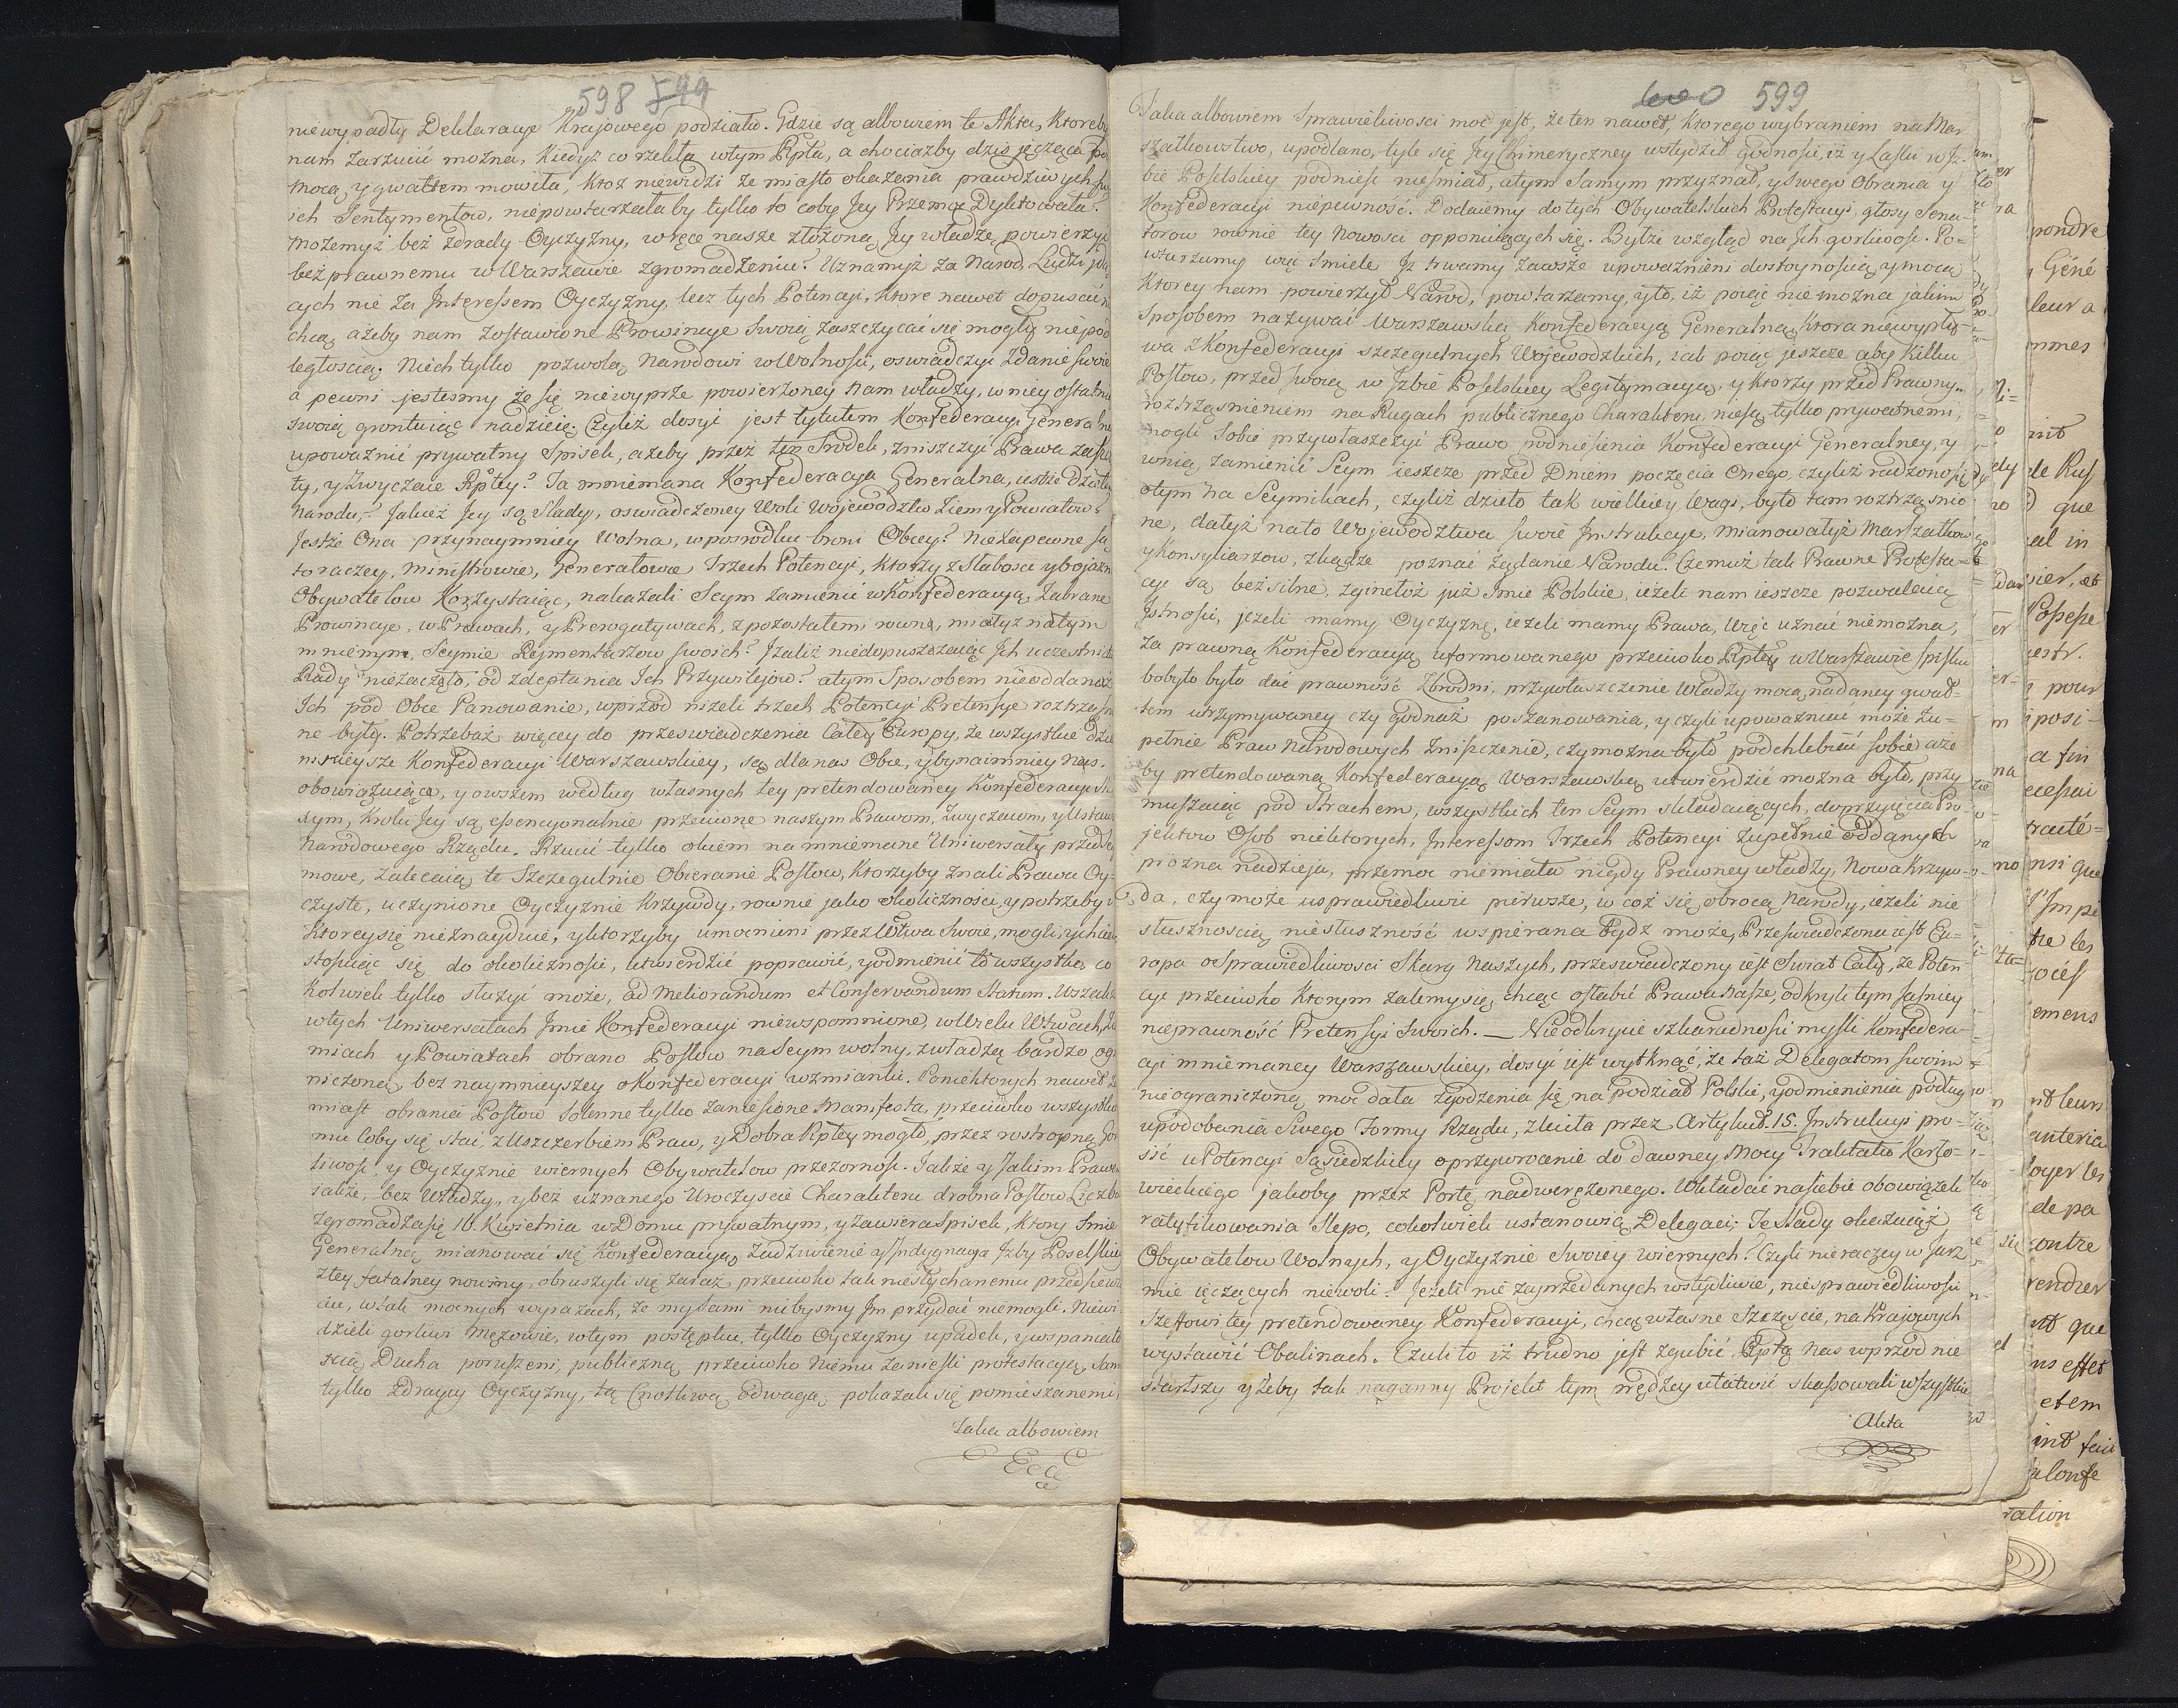 598 599
niewypadły Deklaracye Krajowego podziału. Gdzie są albowiem te Akta, Ktoreby
nam zarzucić można, Kiedyż co rzekła wtym Rpta, a chociażby dziś jęcząca pod
mocą, y gwałtem mowiła, Ktoż niewidzi że miasto okazania prawdziwych
ich Sentymentow, niepowtarzałaby tylko to coby Jey Przemoc Dyktowała?
Możemyż bez zdrady Oyczyzny, w ręce nasze złożoną Jey władzę powierzyć
bezprawnemu w Warszawie zgromadzeniu? Uznamyż za Narod, Ludzi
cych nie za Interessem Oyczyzny, lecz tych Potencyi, Ktore nawet dopuścić
chcą, ażeby nam zostawione Prowincye swoią zaszczycać się mogły niepod
ległością; Niech tylko pozwolą Narodowi w Wolności, oswiadczyć Zdanie swoie
a pewni jestesmy że się niewyprze powierzoney Nam władzy, w niey ostatnią
swoią gruntuiąc nadzieię. Czyliż dosyć jest tytułem Konfederacyi Generalney
upoważnić prywatny Spisek, ażeby przez ten Srodek, zniszczyć Prawa
ty, y Zwyczaie Rptey? Ta mniemana Konfederacya Generalna, iestże dziełem
Narodu? Jakież Jey są Slady, oswiadczoney Woli Wojewodztw Ziem y Powiatow?
Jestże Ona przynaymniey Wolna, wposrodku broni Obcey? Niezapewne są
to raczey, Ministrowie, Generałowie Trzech Potencyi, Ktorzy z Słabości y bojaźni
Obywatelow Korzystaiąc, nakazali Seym zamienić w Konfederacyą. Zabrane
Prowincye, w Prawach, y Prerogatywach, z pozostałemi rowne, miałyż natym
mniemym, Seymie Rejmentarzow swoich? Izaliż niedopuszczaiąc Ich uczestnictwa
Rady niezaczęto, od zdeptania Ich Przywilejow? atym Sposobem nieoddanoż
Ich pod Obce Panowanie, wprzod niżeli trzech Potencyi Pretensye roztrząśnio
ne były. Potrzebaż więcey do przeswiadczenia Całey Europy, że wszystkie
mnieysze Konfederacyi Warszawskiey, są dla nas Obce, y bynaimniey Nas
obowiązuiące, y owszem według własnych tey pretendowaney Konfederacyi
, Kroki Jey są essencyonalnie przeciwne naszym Prawom, Zwyczaiom, y Ustawom
Narodowego Rządu. Rzucić tylko okiem na mniemane Uniwersały przedsey
mowe, zalecaią te Szczegulnie Obieranie Posłow, Ktorzyby znali Prawa Oy-
czyste, uczynione Oyczyznie Krzywdy, rownie jako okoliczności, y potrzeby w
Ktorey się nieznayduie, y ktorzyby umocnieni przez Wtwa swoie, mogli, y chcieli
stosuiąc się do okoliczności, utwierdzić poprawić, y odmienić to wszystko, co
kolwiek tylko służyć może, ad Meliorandum et Conservandum Statum. Wszakże
wtych Uniwersałach Imie Konfederacyi niewspomnione, w Wielu Wtwach, Zie
miach y Powiatach obrano Posłow na Seym wolny, z władzą bardzo ogra
niczoną, bez naymnieyszey o Konfederacyi wzmianki. Poniektorych nawet za
miast obrania Posłow Solenne tylko zaniesione Manifesta, przeciwko wszystkie
mu Coby się stać, z Uszczerbkiem Praw, y Dobra Rptey mogło, przez roztropną Gor
liwość, y Oyczyznie wiernych Obywatelow przezorność. Jakże y Jakim Prawem
jakże, bez Władzy, y bez uznanego Uroczyscie Charakteru drobna Posłow Liczba
zgromadza się 16. Kwietnia w Domu prywatnym, y zawiera Spisek, Ktory Smie
Generalną mianować się Konfederacyą. Zadziwienie y Indygnacya Izby Poselskiey
ztey fatalney nowiny, obruszyli się zaraz przeciwko tak niesłychanemu przedsiewzię
ciu, w tak mocnych wyrazach, że mysłami nibysmy Im przydać niemogli. Niewi
dzieli gorliwi Mężowie, wtym postępku, tylko Oyczyzny upadek, y wspaniało
scią Ducha poruszeni, publiczną przeciwko Niemu zaniesli protestacyą, Sami
tylko Zdraycy Oyczyzny, tą Cnotliwą Odwagą, pokazali się pomieszanemi,
Taka albowiem
600 599
Taka albowiem Sprawiedliwości moc jest, że ten nawet, Ktorego wybraniem na Mar
szałkowstwo, upodlano, tyle się Jey Chimeryczney wstydził godności, iż y Laski w Iz-
bie Poselskiey podniesć niesmiał, atym Samym przyznał, y swego Obrania y
Konfederacyi niepewność. Dodaiemy do tych Obywatelskich Protestacyi, głosy Sena-
torow rownie tey Nowości opponuiących się. Byłże wzgląd na Ich gorliwość. Po-
wturzmy więc Smiele Iż trwamy zawsze upoważnieni dostoynością y mocą
Ktorey nam powierzył Narod, powtarzamy, y to, iż pocię nie można jakim
Sposobem nazywać Warszawską Konfederacyą Generalną, Ktora niewypły-
wa z Konfederacyi szczegulnych Wojewodzkich, iak pocię jeszcze aby Kilku
Posłow, przed swoią w Izbie Poselskiey Legitymacyą, y Ktorzy przed Prawnym
roztrząsnieniem na Rugach publicznego Charakteru, niesą tylko prywatnemi,
mogli Sobie przywłaszczyć Prawo podniesienia Konfederacyi Generalney, y
w nią, zamienić Seym ieszcze przed Dniem poczęcia Onego, czyliż radzono się
otym na Seymikach, czyliż dzieło tak wielkiey Wagi, było tam roztrząsnio
ne, dałyż nato Wojewodztwa swoie Instrukcye, Mianowałyż Marszałkow
y Konsyliarzow, zkądże poznać żądanie Narodu? Czemuż tak Prawne Protesta-
cye są bezsilne, zginełoż już Imie Polskie, ieżeli nam ieszcze pozwalaią
Istności, jeżeli mamy Oyczyznę, ieżeli mamy Prawa, Więc uznać niemożna,
za prawną Konfederacyą uformowanego przeciwko Rptey w Warszawie spisku
boby to było dać prawność Zbrodni, przywłaszczenie Władzy mocą nadaney gwał-
tem utrzymywaney czy godnaż poszanowania, y czyli upoważniać może zu-
pełnie Praw Narodowych Zniszczenie, czy można było podchlebiać sobie aże
by pretendowaną Konfederacyą Warszawską utwierdzić można było, przy
muszaiąc pod Strachem, wszystkich ten Seym składaiących, doprzyięcia Pro-
jektow Osob niektorych, Interessom Trzech Potencyi zupełnie oddanych
prożna nadzieja, przemoc niemiała nigdy Prawney władzy, Nowa Krzyw-
da, czy może usprawiedliwić pierwsze, w coż się obrocą Narody, ieżeli nie
słusznoscią niesłuszność wspierana bydz może, Przeswiadczona iest Eu-
ropa o Sprawiedliwości Skarg Naszych, przeswiadczony iest Swiat Cały, że Poten-
cye przeciwko Ktorym żalemy się, chcąc osłabić Prawa Nasze, odkryli tym jasniey
nieprawność Pretensyi Swoich. — Nieodkrycie szkaradności mysli Konfedera-
cyi mniemaney Warszawskiey, dosyć iest wytknąć, że taż Delegatom swoim
nieograniczoną moc dała zgodzenia się na podział Polski, y odmienienia podług
upodobania Swego Formy Rządu, zleciła przez Artykuł 15. Instrukcyi pro-
sić u Potencyi Sąsiedzkiey oprzywrocenie do dawney Mocy Traktatu Karlo-
wieckiego jakoby przez Portę nadwerężonego. Wkładać na siebie obowiązek
ratyfikowania slepo, cokolwiek ustanowią Delegaci; Te slady okazuiąż
Obywatelow Wolnych, y Oyczyznie Swoiey wiernych? Czyli nie raczey w Jarz
mie ięczących niewoli? Jeżeli nie zaprzedanych wstydliwie, niesprawiedliwości
Szeffowi tey pretendowaney Konfederacyi, chcą własne Szczęscie, na Krajowych
wystawić Obalinach. Czuli to iż trudno jest zgubić Rptą Nas wprzod nie
starłszy y żeby tak naganny Projekt tym prędzey ułatwić skassowali wszystkie
Akta